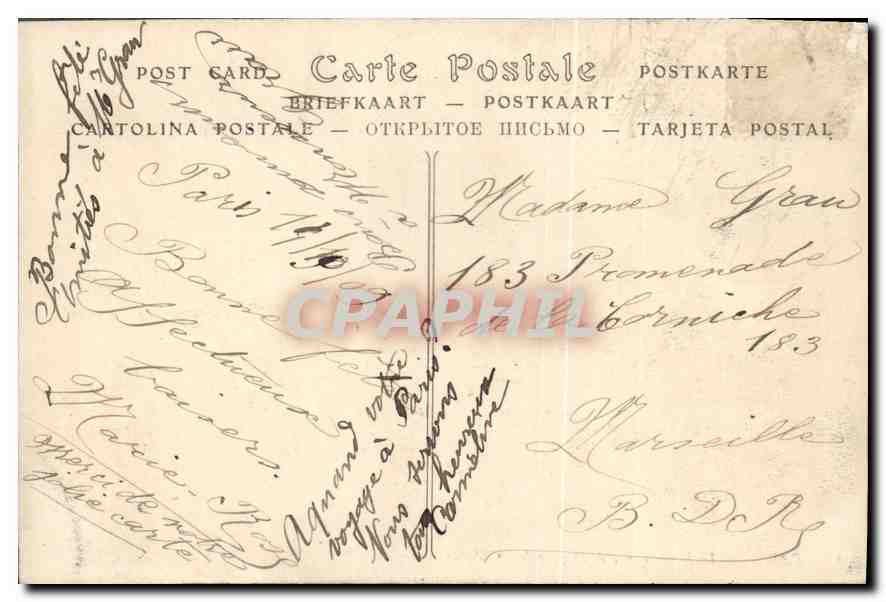 POST CARD Carte Postale POSTKARTE
BRIEFKAART — POSTKAART
CARTOLINA POSTALE — ОТКРЫТОЕ ПИСЬМО — TARJETA POSTAL
CPAPHIL
Bonne fête
Amitiés à Mr Grau
Paris 17/10/09
Bonne fête
Affectueux
baisers.
Marie-Rose
Merci de votre
jolie carte
A quand votre
voyage à Paris?
Nous serions
heureux
Caméline
Madame Grau
183 Promenade
de la Corniche
183
Marseille
B. D R